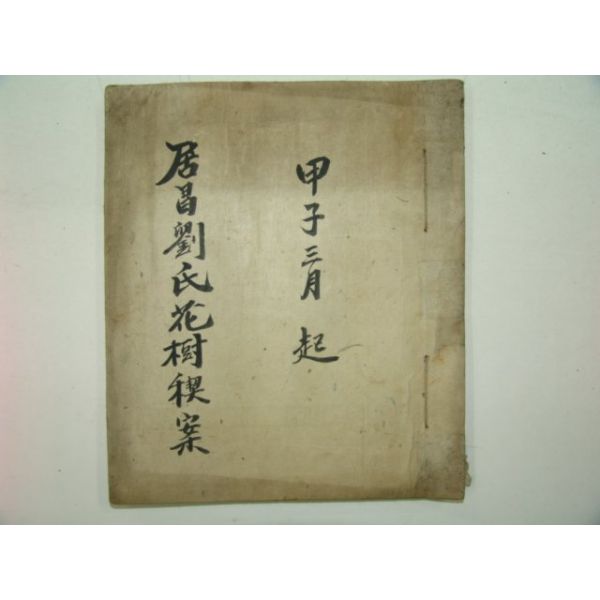 甲子三月 起
居昌劉氏花樹稧案